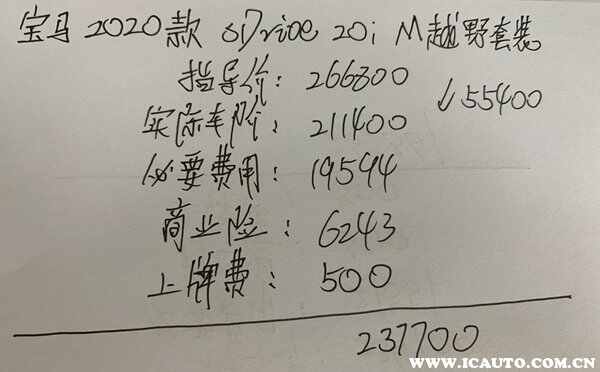 宝马 2020款 sDrive 20i M越野套装
指导价: 266800
↓55400
实际车价: 211400
必要费用: 19594
商业险: 6243
上牌费: 500
237700
WWW.ICAUTO.COM.CN